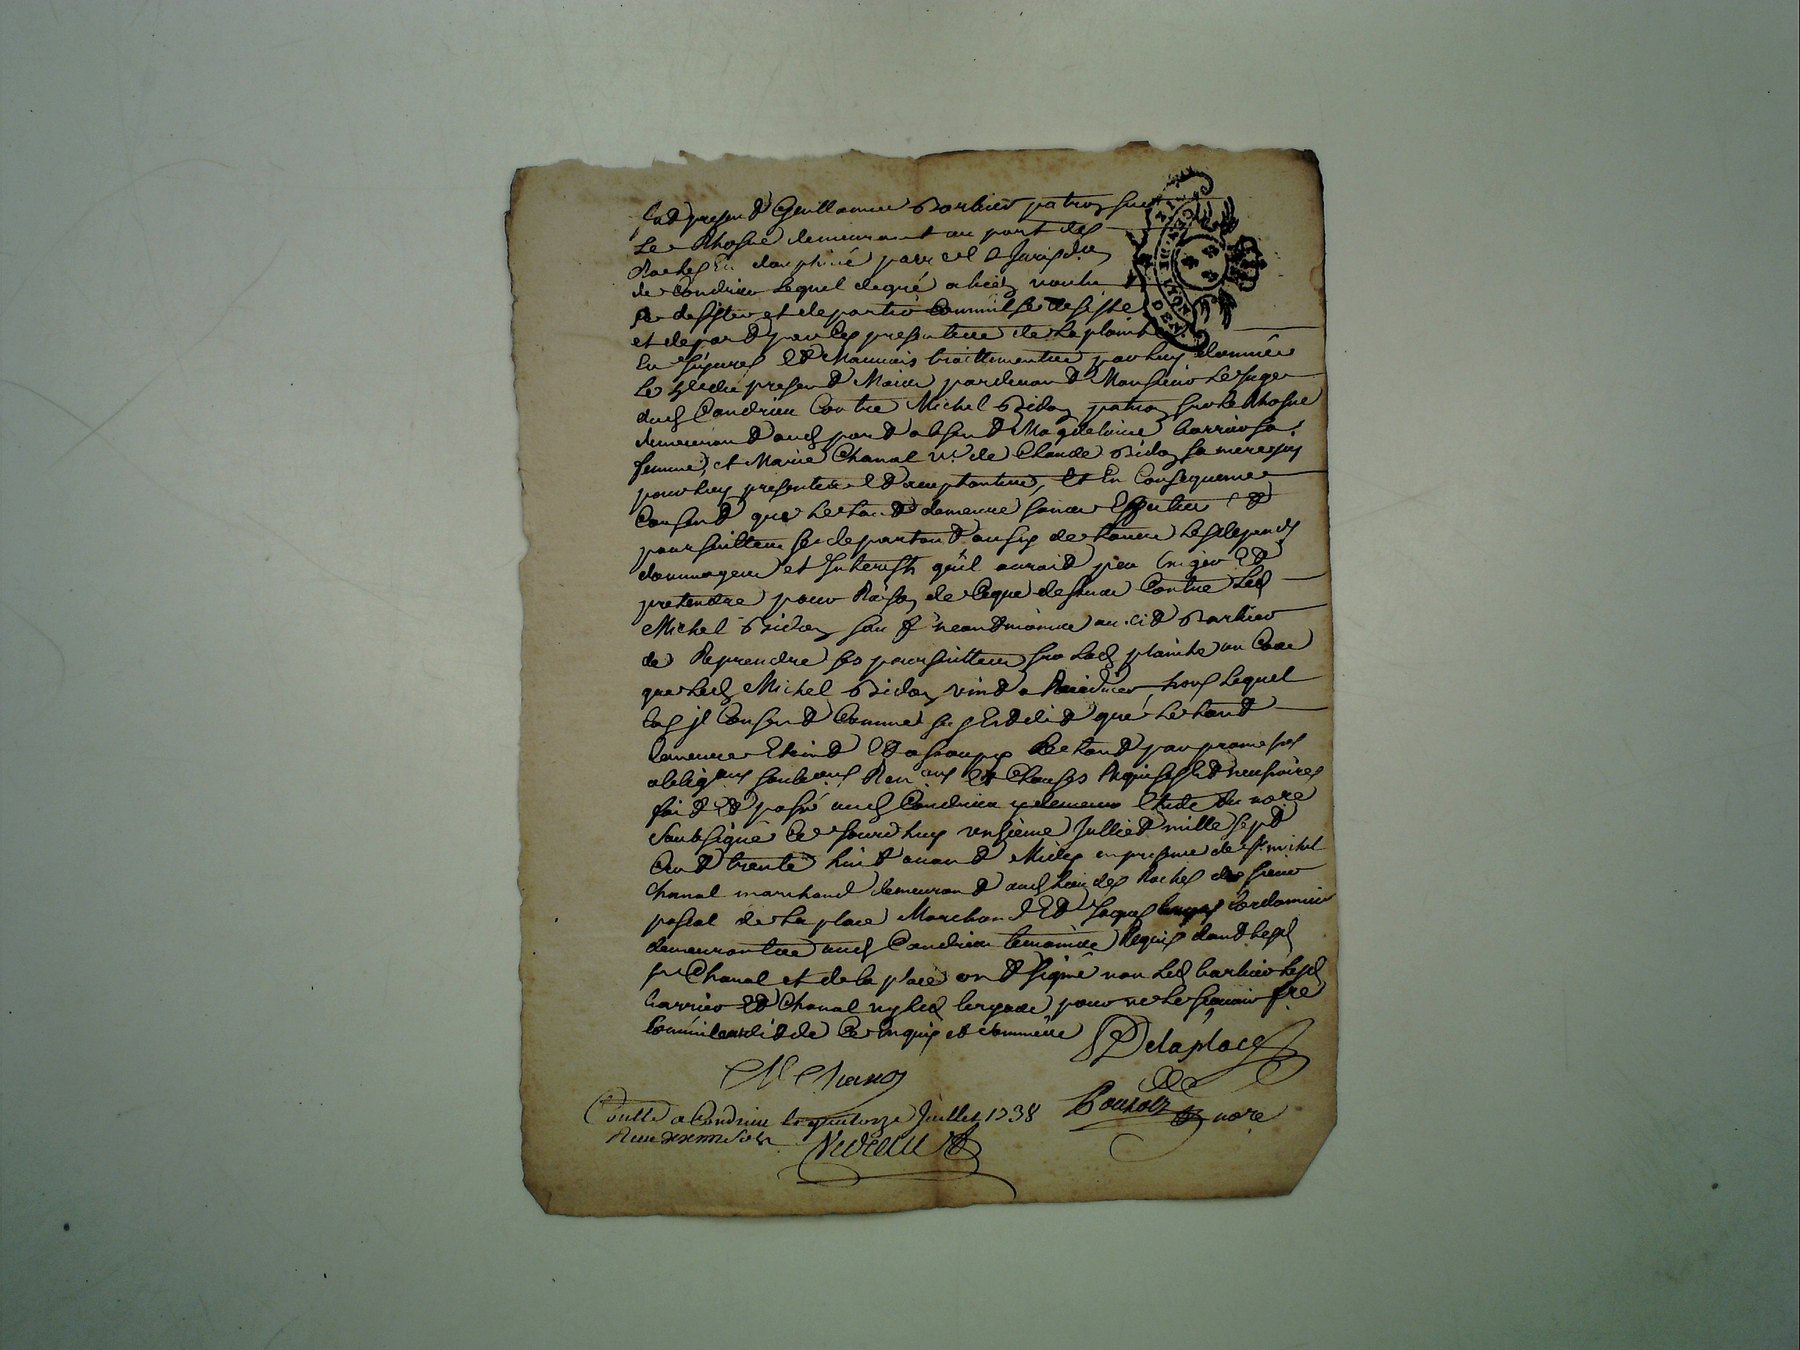 fut present Guillaume Barbier patron sur
Le Rhosne demeurant au port des
Roches En dauphiné parr et Jurisd.on
de Condrieu Lequel de gré
se desister et departir Comm'il se desiste
et depart par Ces presentes de La plainte
En Injures Et Mauvais traittements par Luy donnée
Le present Mois pardevant Monsieur Le Juge
dud Condrieu Contre Michel Bidon patron sur Le Rhosne
demeurant aud port absent Magdelaine barrier sa
femme, et Marie Chanal v.e de Claude Bidon sa mere
pour Luy presentes Et acceptantes, Et En Consequence
Consent que Le tout demeure sans Et
poursuittes se departant aussy de tous Les depends
dommages et Interests qu'il auroit peu Exiger Et
pretendre pour Raison de Ce que dessus Contre Led
Michel Bidon sauf neantmoins aud Barbier
de Reprendre ses poursuittes sur Lad plainte au Cas
que Led Michel Bidon vint a Recidiver, hors Lequel
Cas jl Consent Comme sus Est dit que Le tout
demeure Eteint Et assoupy Le tout par promesses
oblig.ons Ren.ons Et Clauses Requises Et necessaires
fait Et passé aud Condrieu Etude du no.re
Soubsigné Ce Jourd'huy Juillet mille sept
Cent trente huit avant Midy en presence de s.r michel
Chanal marchand demeurant aud Lieu des Roches de sieur
pascal de La place Marchand Et Jaques Cordonnier
demeurants aud Condrieu temoins Requis dont Lesd
s.r Chanal et de la place ont signé non Led barbier Lesd
barrier Et Chanal ny Led pour ne Le scavoir fre
de Ce Enquis et sommés
Delaplace
Chanal
Conllé a Condrieu Le quatorze Juillet 1738
no.re